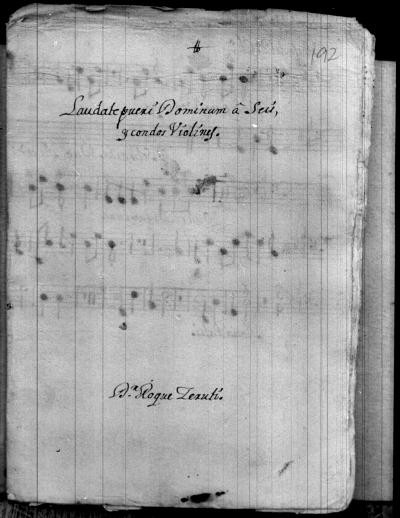 192
Laudate pueri Dominum â Seis,
y con dos Violines.
Dn. Roque Zeruti.